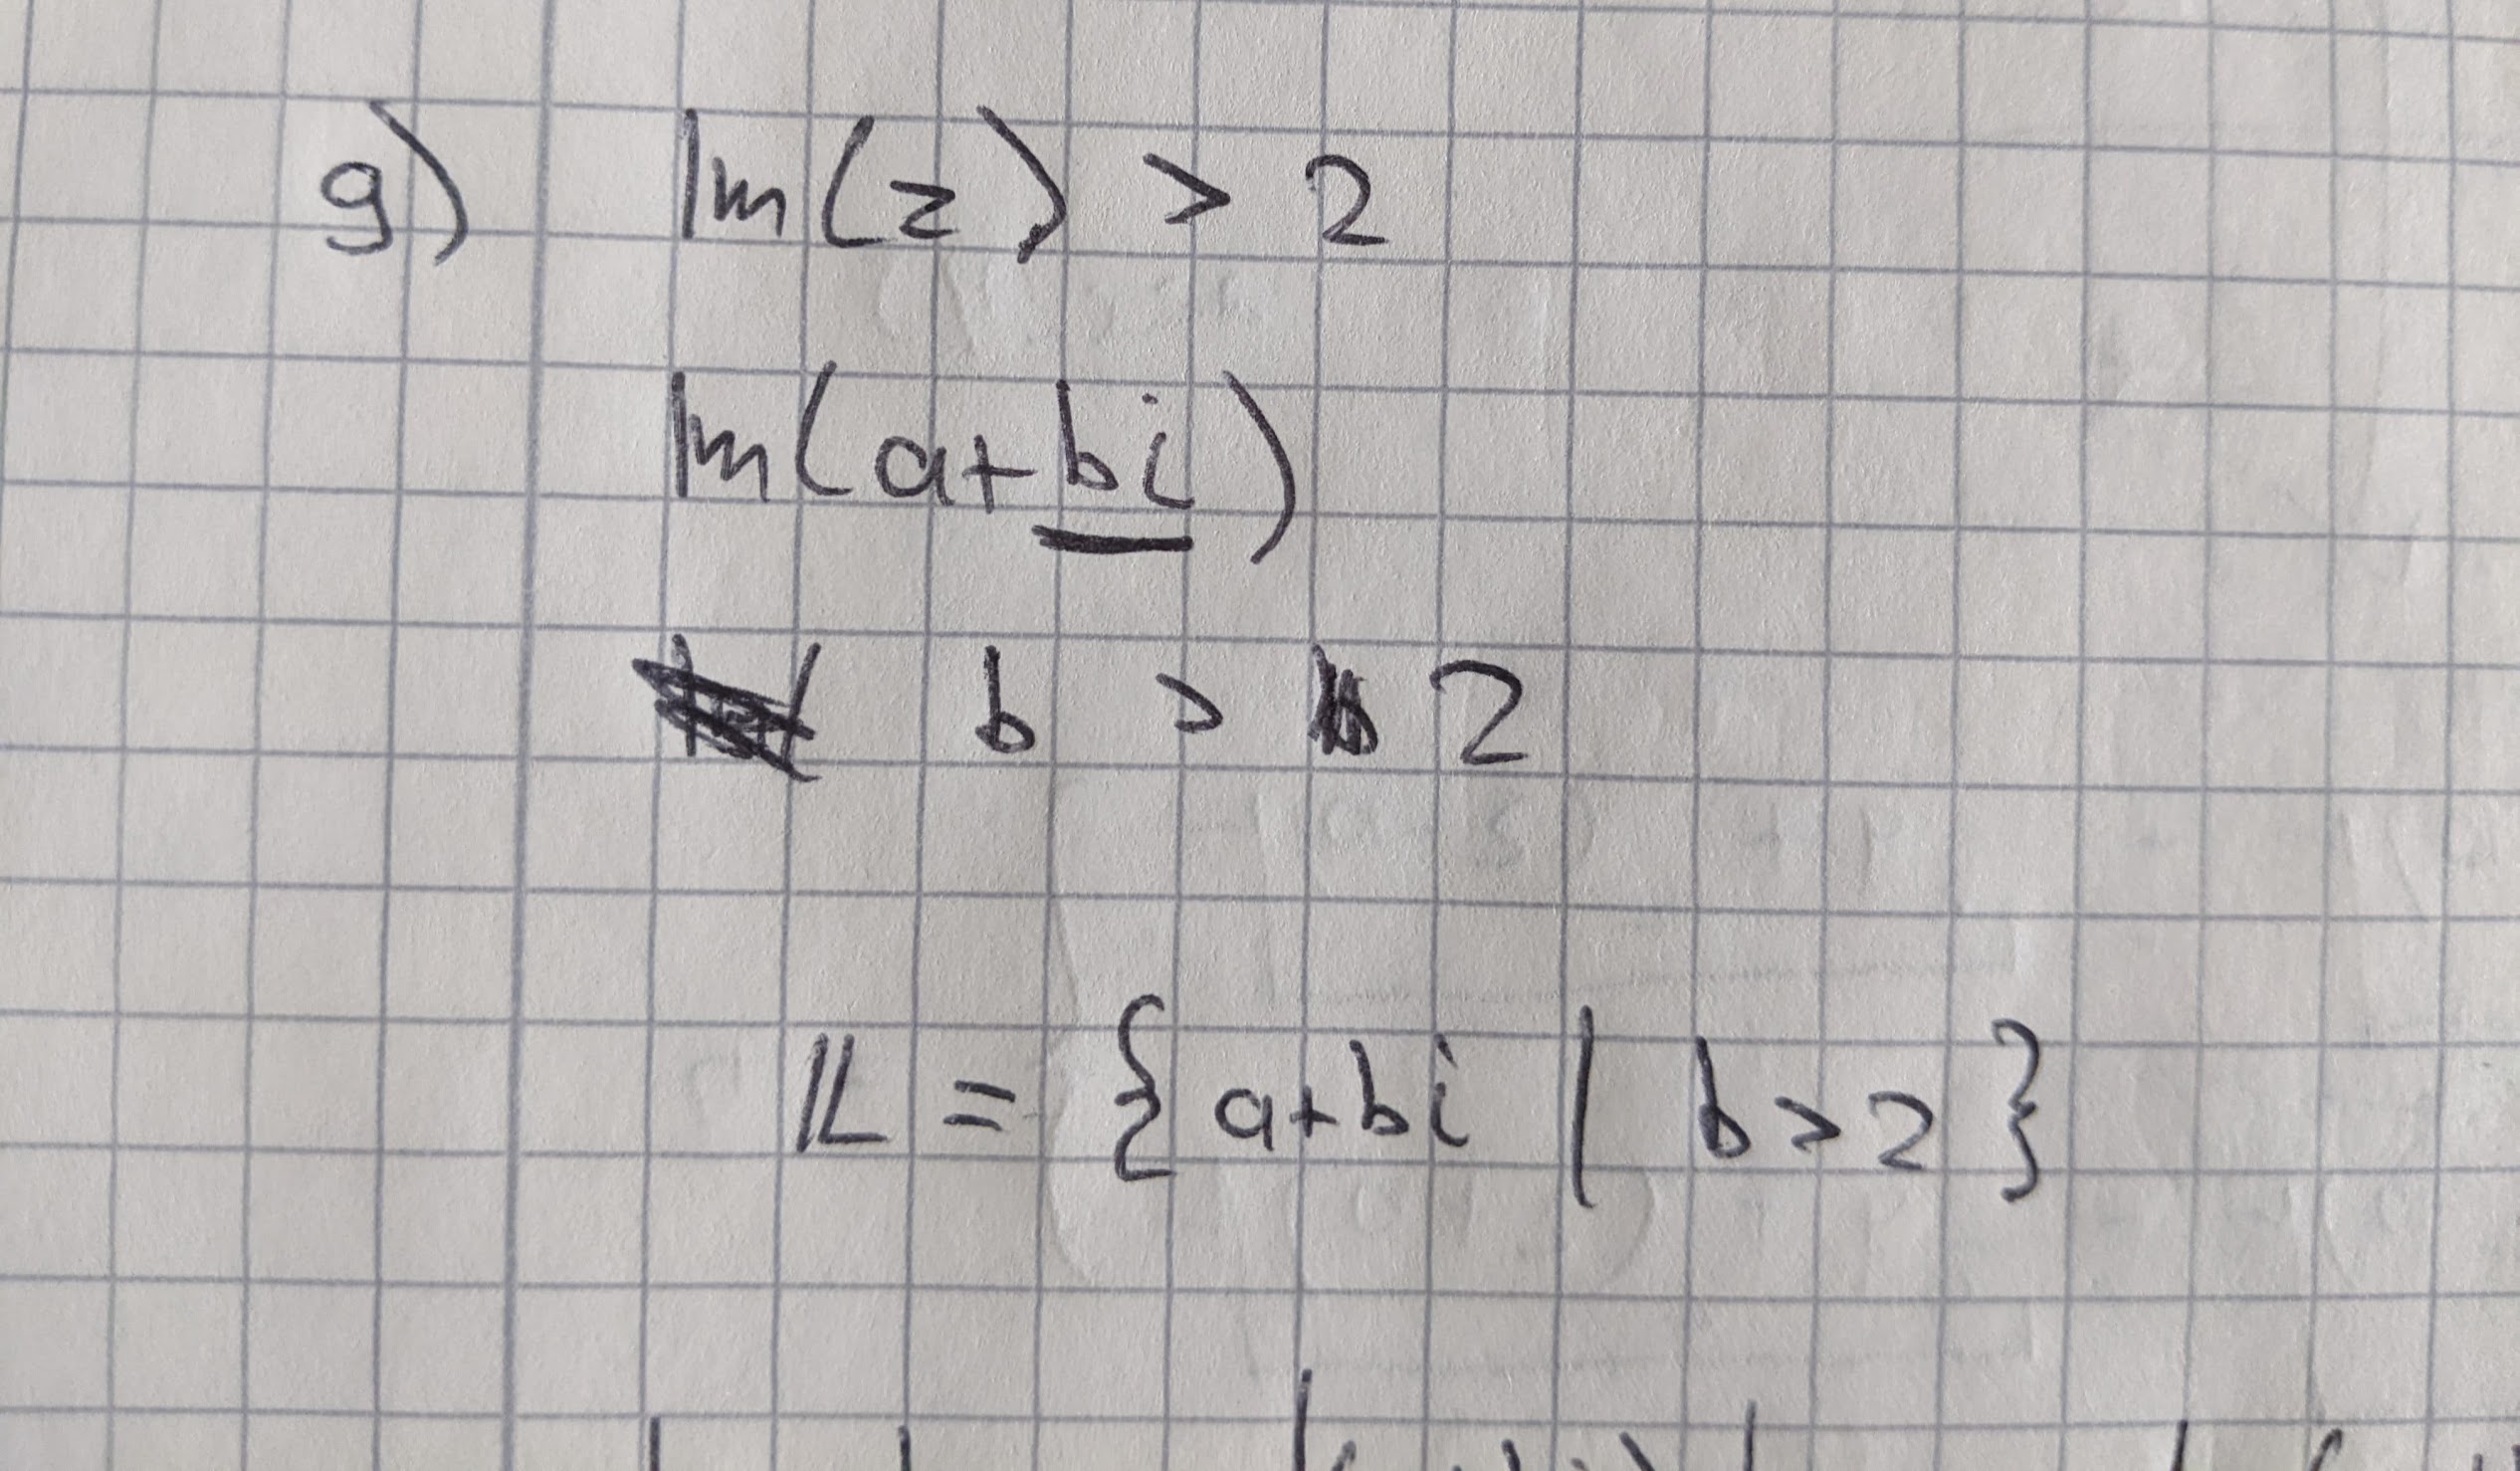 g) Im(z) > 2
Im(a+bi)
b > 2
𝕃 = {a+bi | b>2}